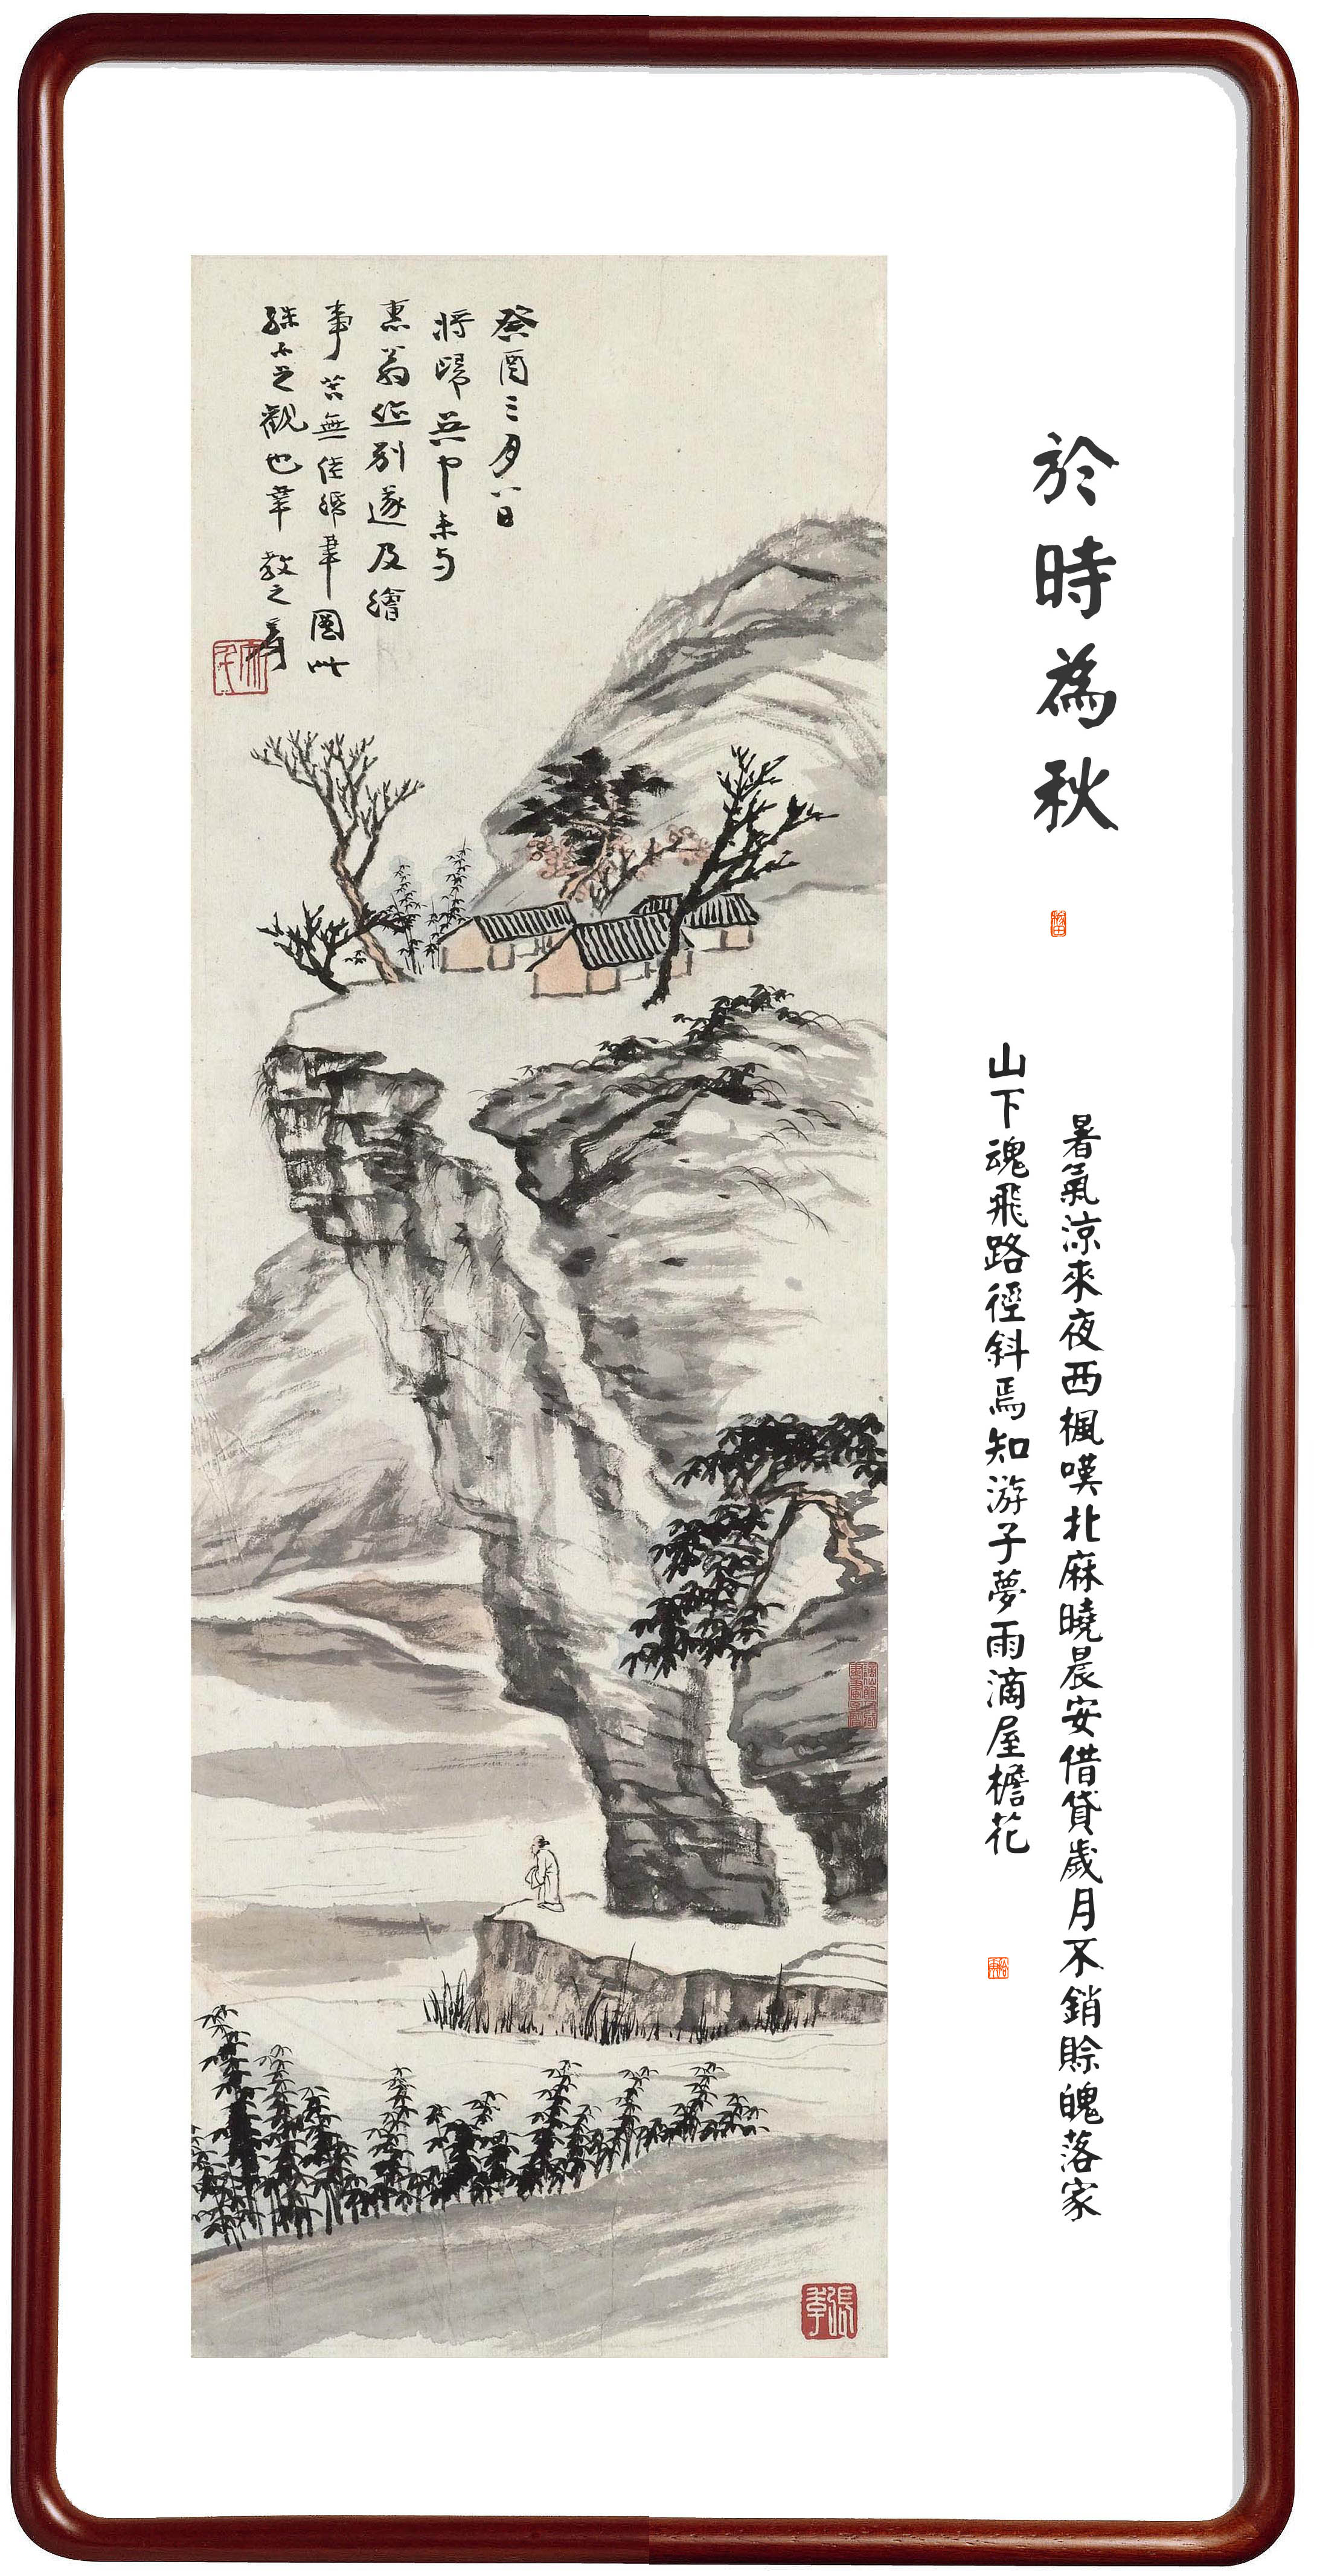 於時為秋
暑氣涼來夜西楓嘆北麻曉晨安借貸歲月不銷賒魄落家
山下魂飛路徑斜焉知游子夢雨滴屋檐花
癸酉三月八日
將歸吳中来与
惠翁作別遂及繪
事苦無佳紙筆圖此
殊不足觀也幸教之爰
張季